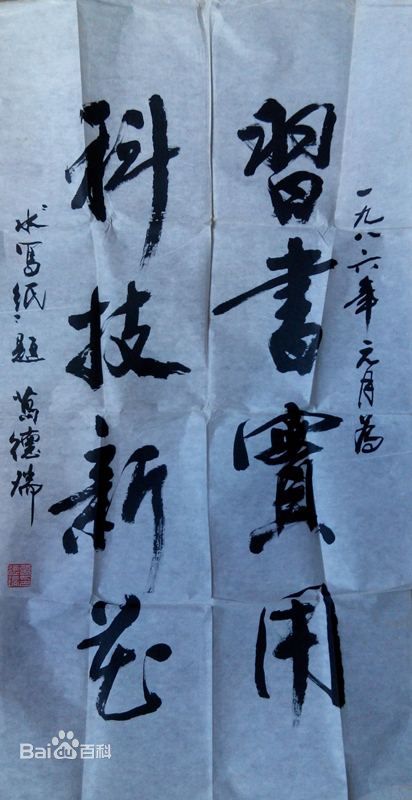 一九八六年元月為
習書實用
科技新花
水寫紙题 萬德瑞
Bai百科